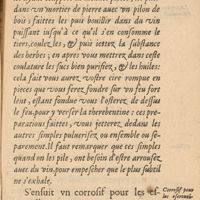 dans vn mortier de pierre auec vn pilon de
bois; faittes les puis bouillir dans du vin
puissant iusqu'à ce qu'il s'en consomme le
tiers, coulez les, & puis iettez la substance
des herbes; en apres vous mettrez dans ceste
coulature les sucs bien purifiez, & les coulez:
cela fait vous aurez vostre cire rompue en
pieces que vous ferez fondre sur vn feu fort
lent, estant fondue vous l'osterez de dessus
le feu, pour y verser la therebentine; ces pre-
parations faittes, vous ietterez dedans les
autres simples puluerisez ou ensemble ou se-
parement. Il faut remarquer que ces simples
quand on les pile, ont besoin d'estre arrousez
auec du vin, pour empescher que le plus subtil
ne s'exhale.
S'ensuit vn corrosif pour les es-
Corrosif pour